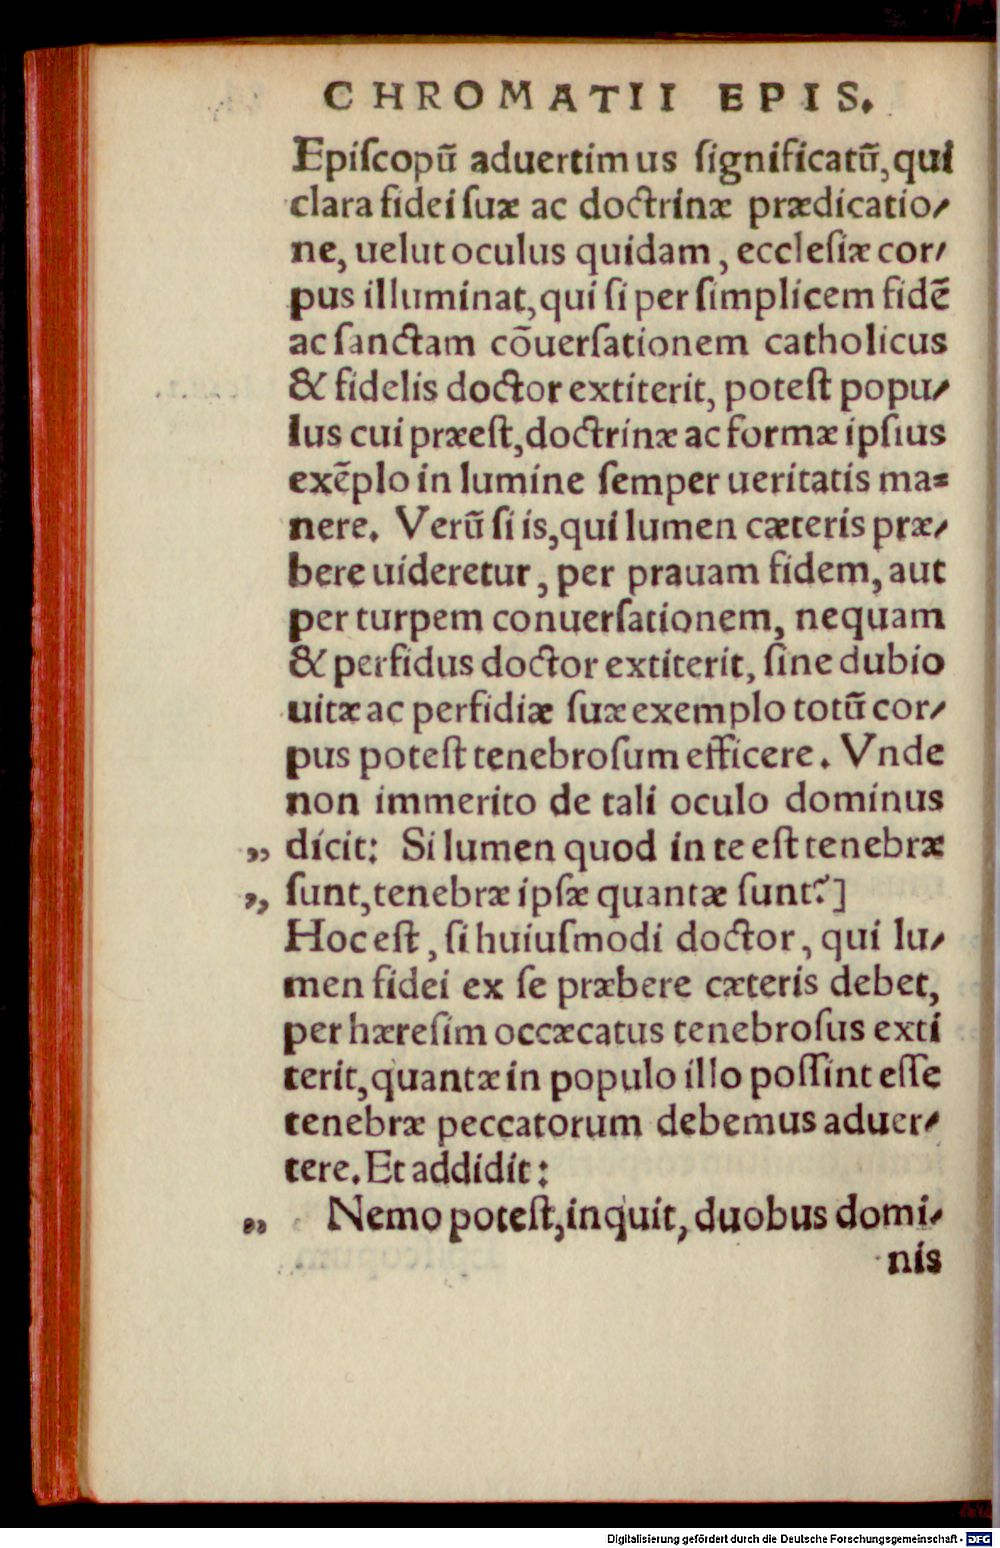 CHROMATII EPIS.
Epiſcopū aduertimus ſignificatū, qui
clara fidei ſuæ ac doctrinæ prædicatio⸗
ne, uelut oculus quidam, ecclesiæ cor⸗
pus illuminat, qui ſi per ſimplicem fidē
ac ſanctam cōuerſationem catholicus
& fidelis doctor extiterit, poteſt popu⸗
lus cui præeſt, doctrinæ ac formæ ipſius
exēplo in lumine ſemper ueritatis ma⸗
nere. Verū ſi is, qui lumen cæteris præ⸗
bere uideretur, per prauam fidem, aut
per turpem conuerſationem, nequam
& perfidus doctor extiterit, ſine dubio
uitæ ac perfidiæ ſuæ exemplo totū cor⸗
pus poteſt tenebroſum efficere. Vnde
non immerito de tali oculo dominus
„ dicit: Si lumen quod in te eſt tenebræ
„ ſunt, tenebræ ipſæ quantæ ſunt?]
Hoc eſt, ſi huiuſmodi doctor, qui lu⸗
men fidei ex ſe præbere cæteris debet,
per hæreſim occæcatus tenebroſus exti
terit, quantæ in populo illo poſſint eſſe
tenebræ peccatorum debemus aduer⸗
tere. Et addidit:
„ Nemo poteſt, inquit, duobus domi⸗
nis
Digitalisierung gefördert durch die Deutsche Forschungsgemeinschaft - DFG